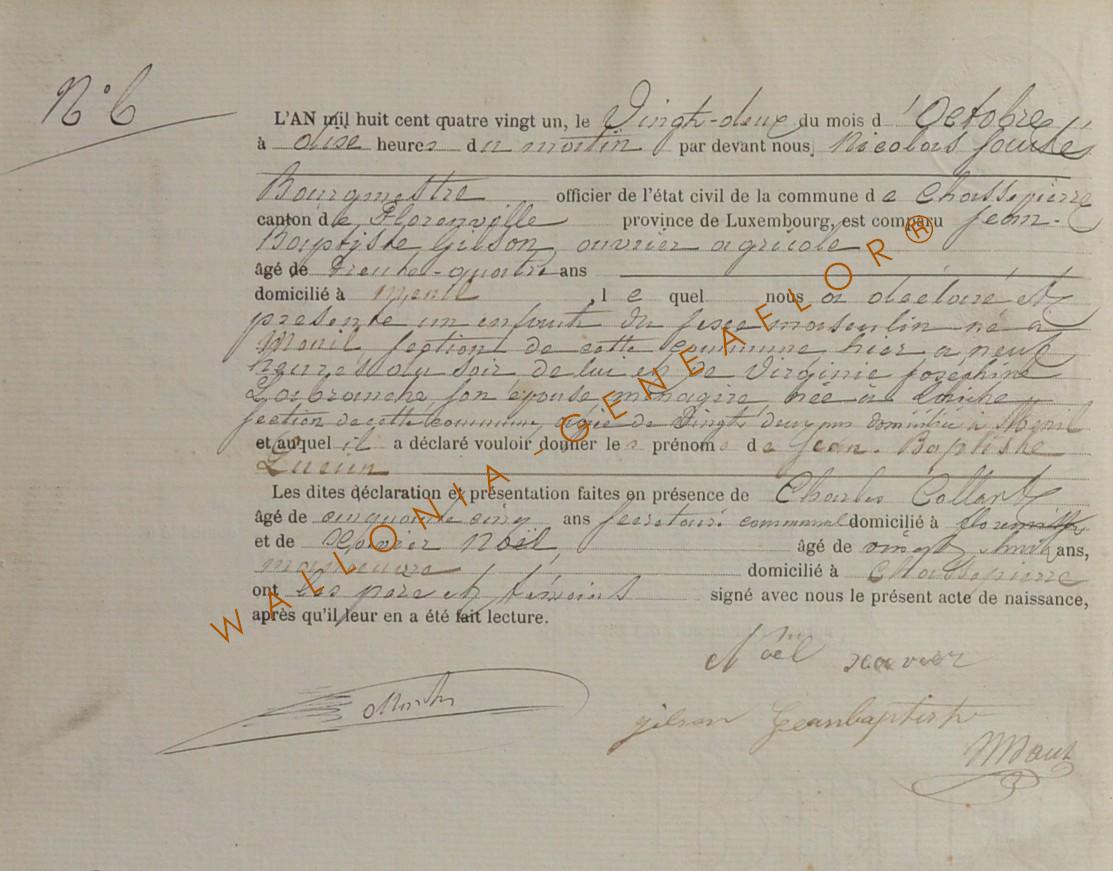 N° 6
L'AN mil huit cent quatre vingt un, le Vingt-deux du mois d'Octobre
à dixe heures du matin par devant nous, Nicolas
Bourgmestre officier de l'état civil de la commune de Chassepierre
canton de Florenville province de Luxembourg, est comparu Jean-
Baptiste Gilson ouvrier agricole
âgé de trente-quatre ans
domicilié à Menil, le quel nous a déclaré et
présenté un enfant du sexe masculin né à
Menil section de cette commune hier à neuf
heures du soir de lui et de Virginie Joséphine
Labranche son épouse ménagère née à Laiche
section de cette commune, âgée de Vingt deux ans domiciliée à Menil
et auquel il a déclaré vouloir donner les prénoms de Jean-Baptiste
Lucien
Les dites déclaration et présentation faites en présence de Charles Collart
âgé de cinquante cinq ans secrétaire communal domicilié à florenville
et de Xavier Noël, âgé de vingt huit ans,
manœuvre domicilié à Chassepierre
ont les père et témoins signé avec nous le présent acte de naissance,
après qu'il leur en a été fait lecture.
Noël xavier
gilson Jeanbaptiste
WALLONIA - GENEAFLOR®